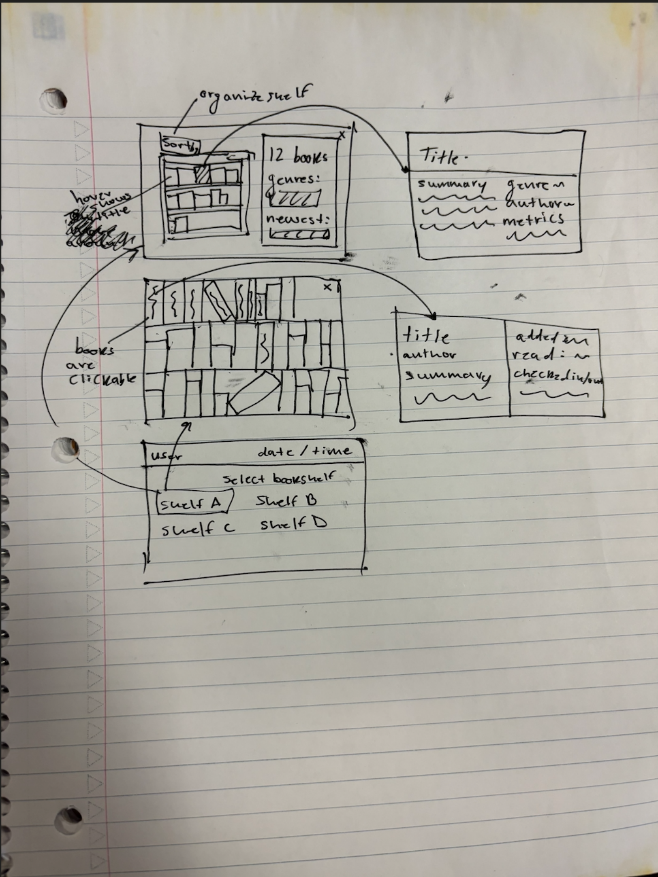 organize shelf
Sort by
12 books
genres:
newest:
hover
shows
title
Title.
summary
genre
author
metrics
books
are
clickable
title
author
summary
added
read:
checked in/out
user
date/time
Select bookshelf
Shelf A
Shelf B
Shelf C
Shelf D